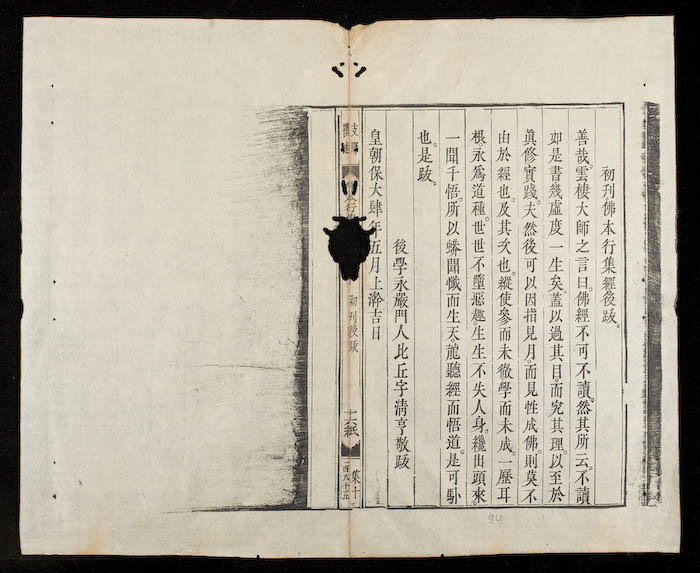 初刊佛本行集經後跋。
善哉。雲棲大師之言曰。佛經不可不讀。然其所云。不讀
如是書幾虛度一生矣。蓋以過其目。而究其理。以至於
眞修實踐。夫然後可以因指見月。而見性成佛。則莫不
由於經也。及其次也。縱使參而未徹學而未成。一歷耳
根永爲道種。世世不墮惡趣。生生不失人身。纔出頭來。
一聞千悟。所以蟒聞懺而生天。龍聽經而悟道。是可馴
也。是跋。
後學永嚴門人比丘字淸亨敬跋
皇朝保大肆年五月上澣吉日
支那
撰述
行
初刊後跋
十六紙
集十
一百八十五
94